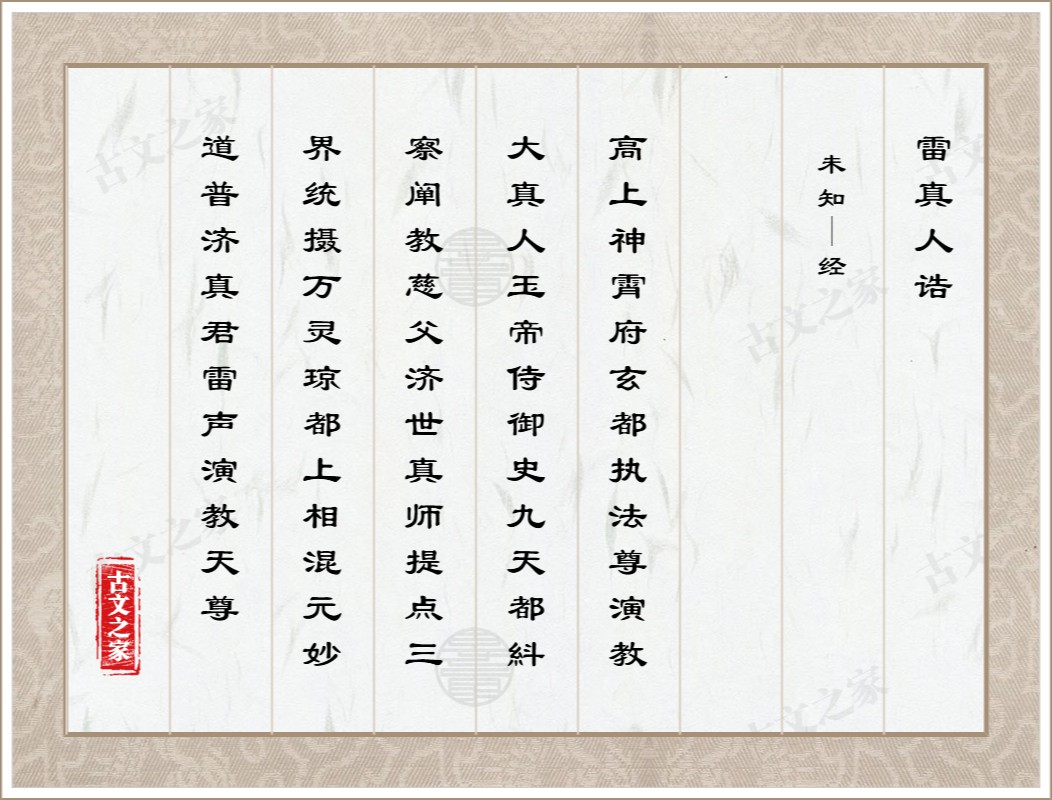 雷真人诰
未知—经
高上神霄府玄都执法尊演教
大真人玉帝侍御史九天都紏
察阐教慈父济世真师提点三
界统摄万灵琼都上相混元妙
道普济真君雷声演教天尊
古文之家
古文之家
古文之家
古文之家
古文之家
古文之家